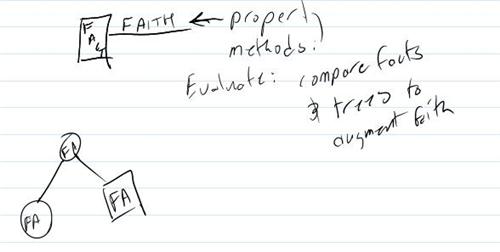 FAITH ← property
methods:
Evaluate: compare facts
& trees to
augment faith
FA
FA
FA